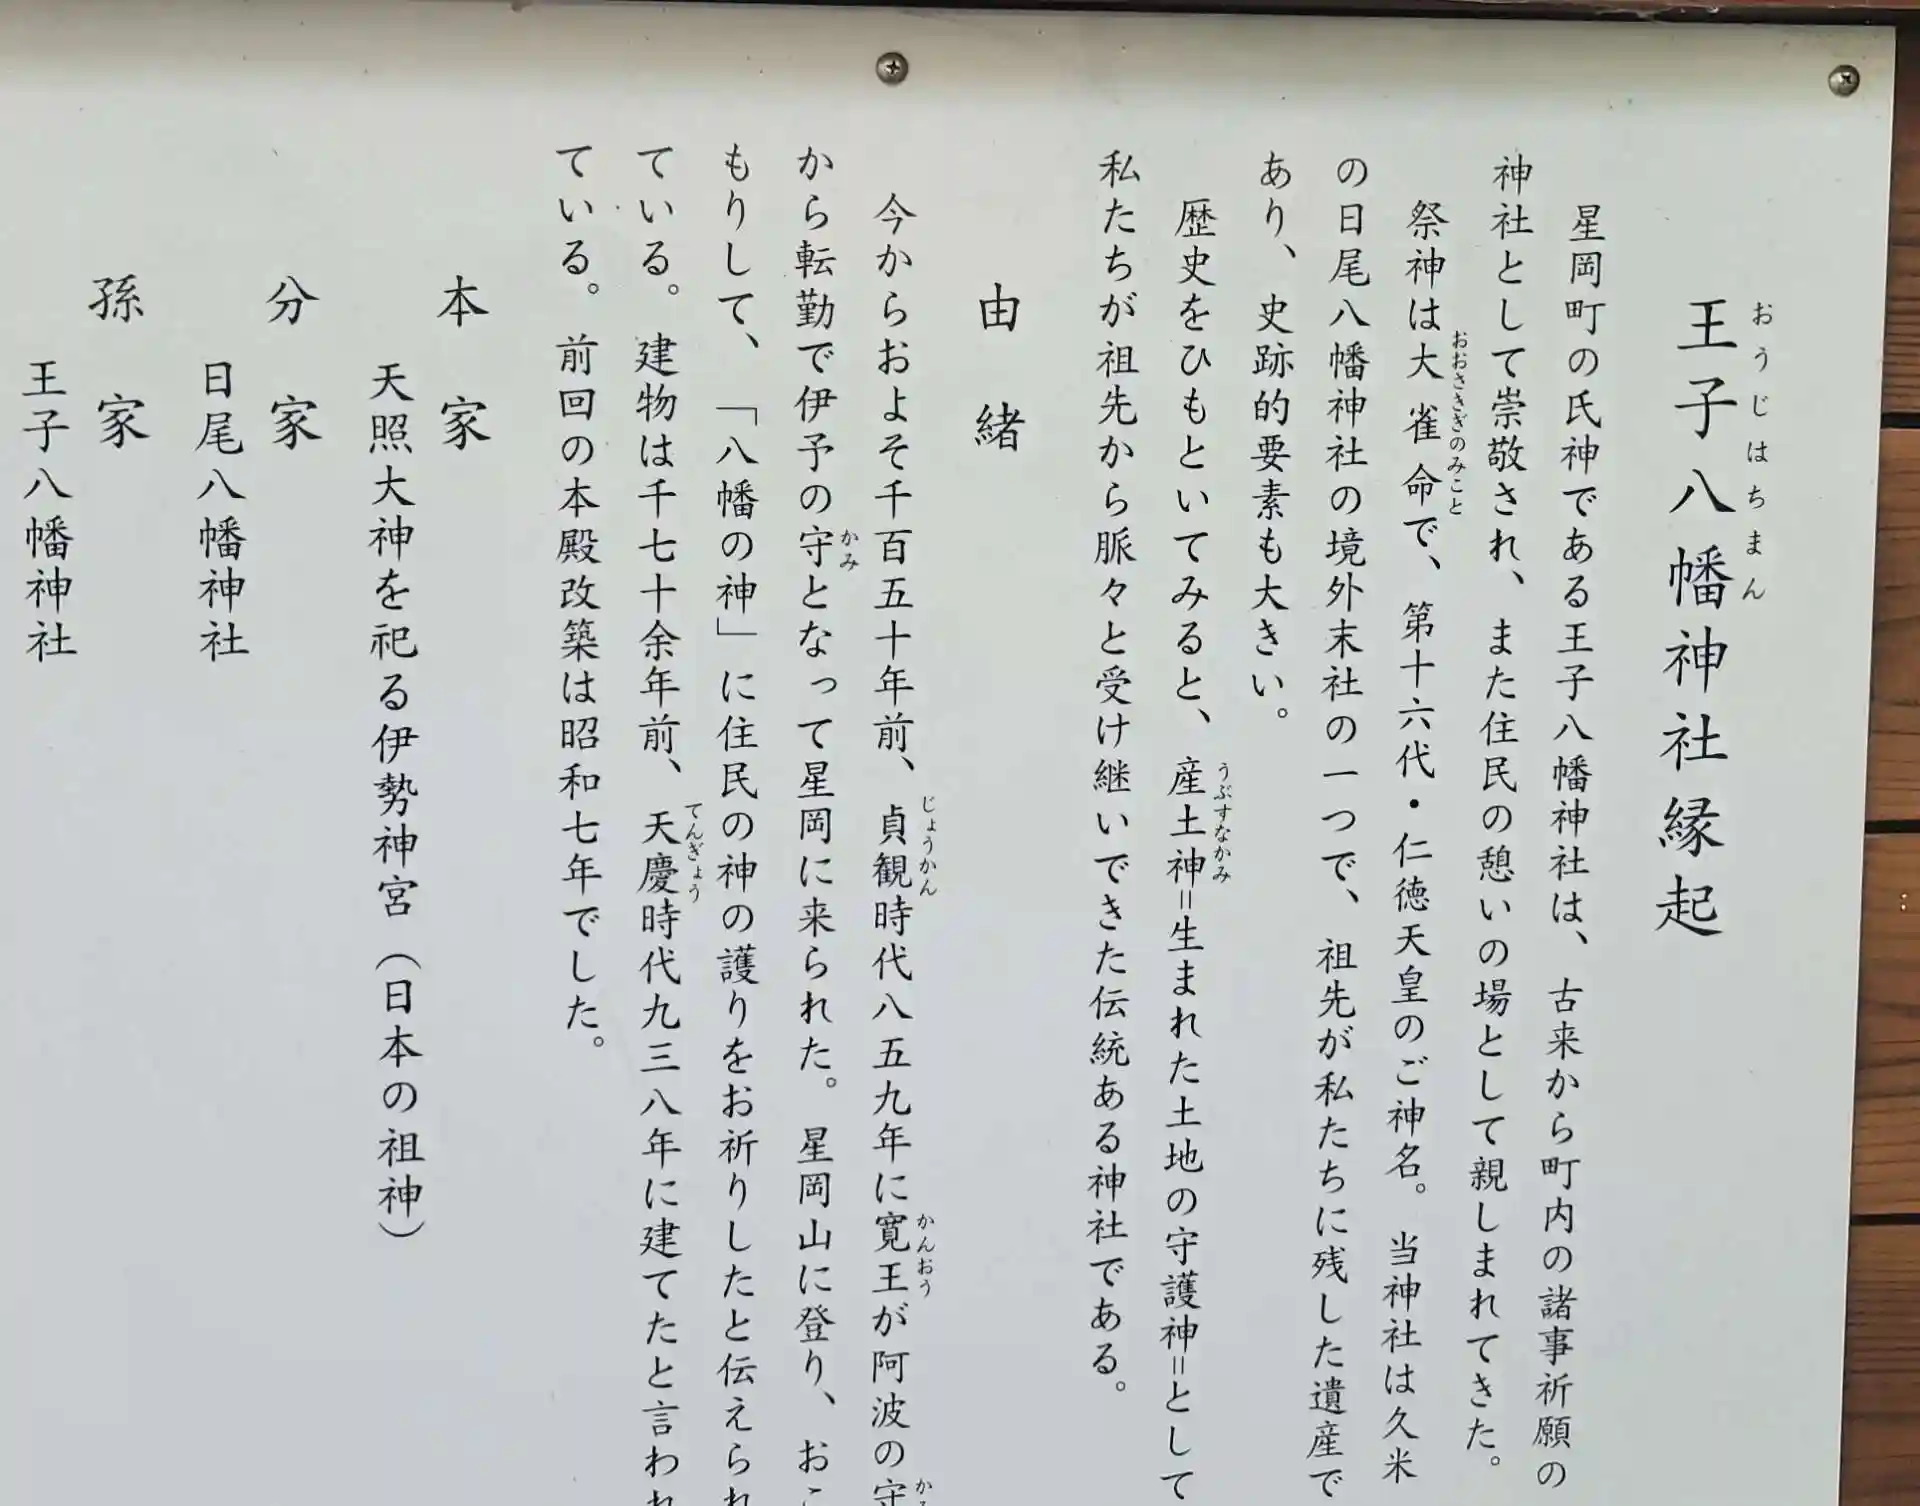 王子八幡神社縁起
おうじはちまん
星岡町の氏神である王子八幡神社は、古来から町内の諸事祈願の
神社として崇敬され、また住民の憩いの場として親しまれてきた。
祭神は大雀命で、第十六代・仁徳天皇のご神名。当神社は久米
おおささぎのみこと
の日尾八幡神社の境外末社の一つで、祖先が私たちに残した遺産で
あり、史跡的要素も大きい。
歴史をひもといてみると、産土神=生まれた土地の守護神=として
うぶすなかみ
私たちが祖先から脈々と受け継いできた伝統ある神社である。
由緒
今からおよそ千百五十年前、貞観時代八五九年に寛王が阿波の守
じょうかん
かんおう
かみ
から転勤で伊予の守となって星岡に来られた。星岡山に登り、おこ
かみ
もりして、「八幡の神」に住民の神の護りをお祈りしたと伝えられ
ている。建物は千七十余年前、天慶時代九三八年に建てたと言われ
てんぎょう
ている。前回の本殿改築は昭和七年でした。
本家
天照大神を祀る伊勢神宮(日本の祖神)
分家
日尾八幡神社
孫家
王子八幡神社